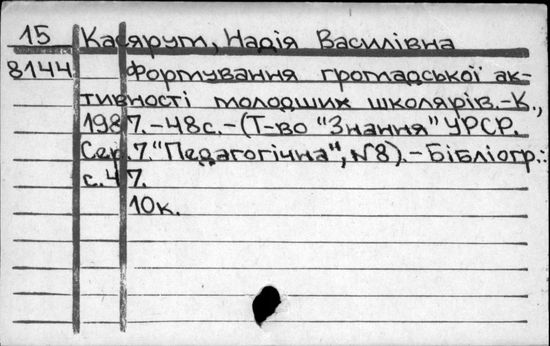 15 Касярум, Надія Василівна
8144 Формування громадської ак-
тивності молодших школярів.-К.,
1987.-48с.-(Т-во "Знання" УРСР.
Сер.7."Педагогічна", №8).-Бібліогр.:
с.47.
10к.